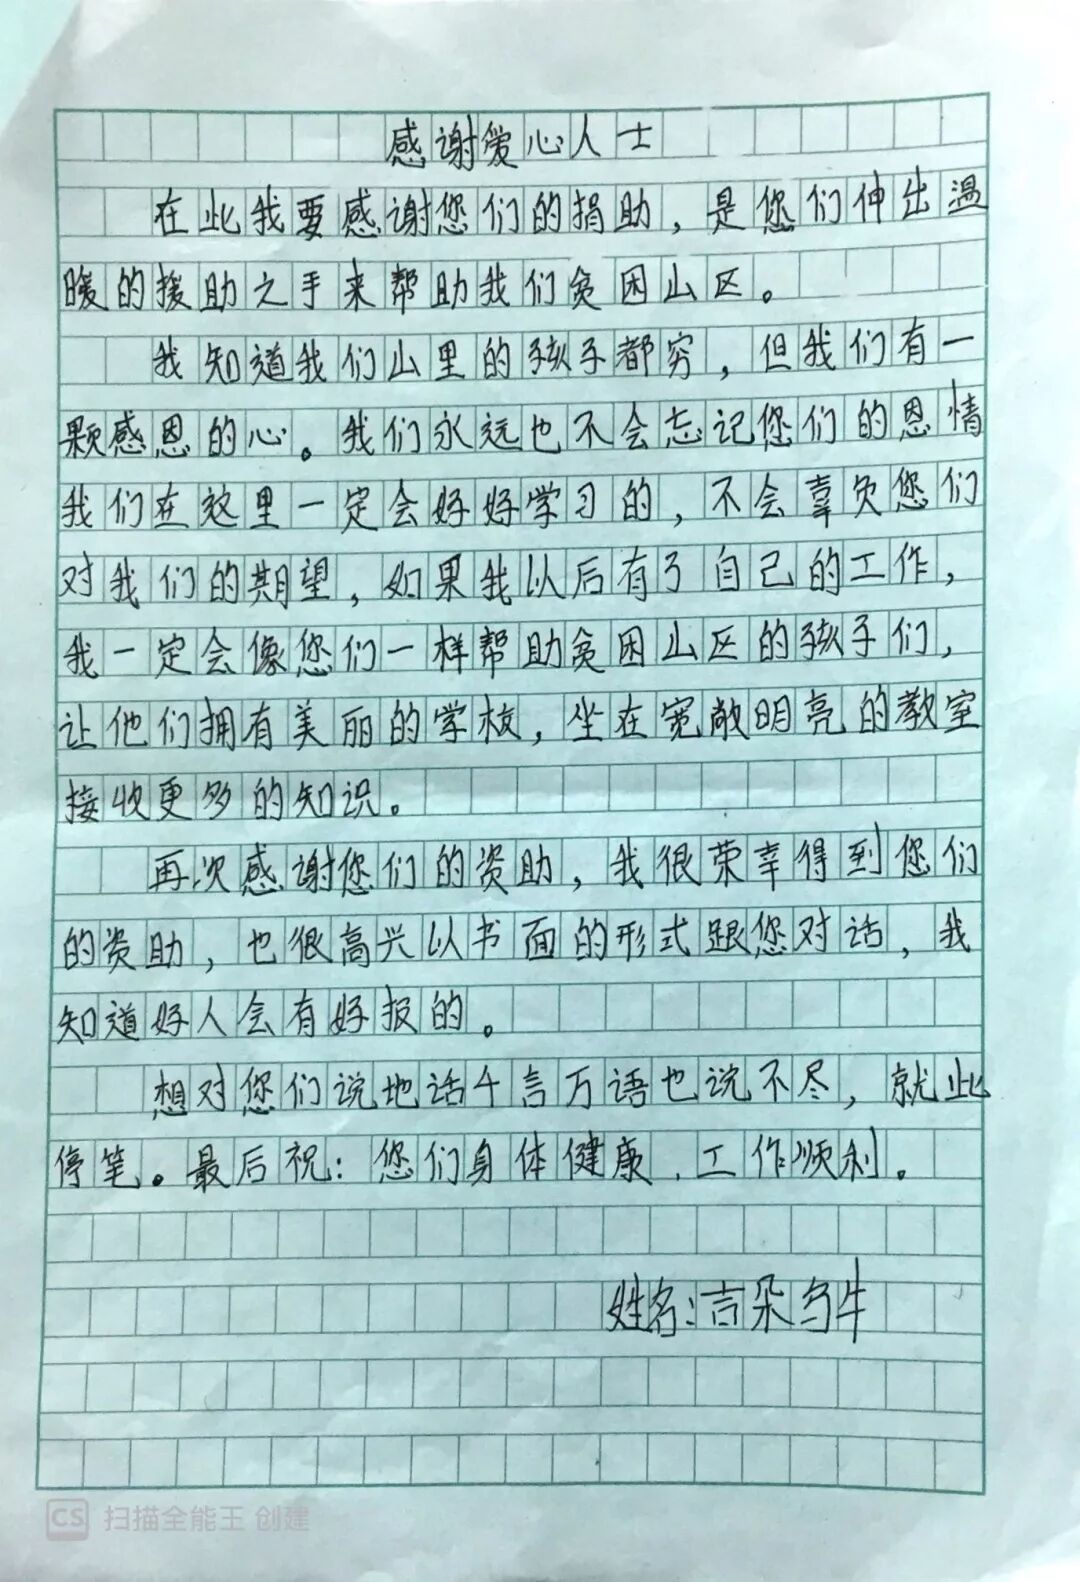 感谢爱心人士
在此我要感谢您们的捐助，是您们伸出温
暖的援助之手来帮助我们贫困山区。
我知道我们山里的孩子都穷，但我们有一
颗感恩的心。我们永远也不会忘记您们的恩情
我们在这里一定会好好学习的，不会辜负您们
对我们的期望，如果我以后有了自己的工作，
我一定会像您们一样帮助贫困山区的孩子们，
让他们拥有美丽的学校，坐在宽敞明亮的教室
接收更多的知识。
再次感谢您们的资助，我很荣幸得到您们
的资助，也很高兴以书面的形式跟您对话，我
知道好人会有好报的。
想对您们说地话千言万语也说不尽，就此
停笔。最后祝：您们身体健康，工作顺利。
姓名：吉朵牛
CS 扫描全能王 创建